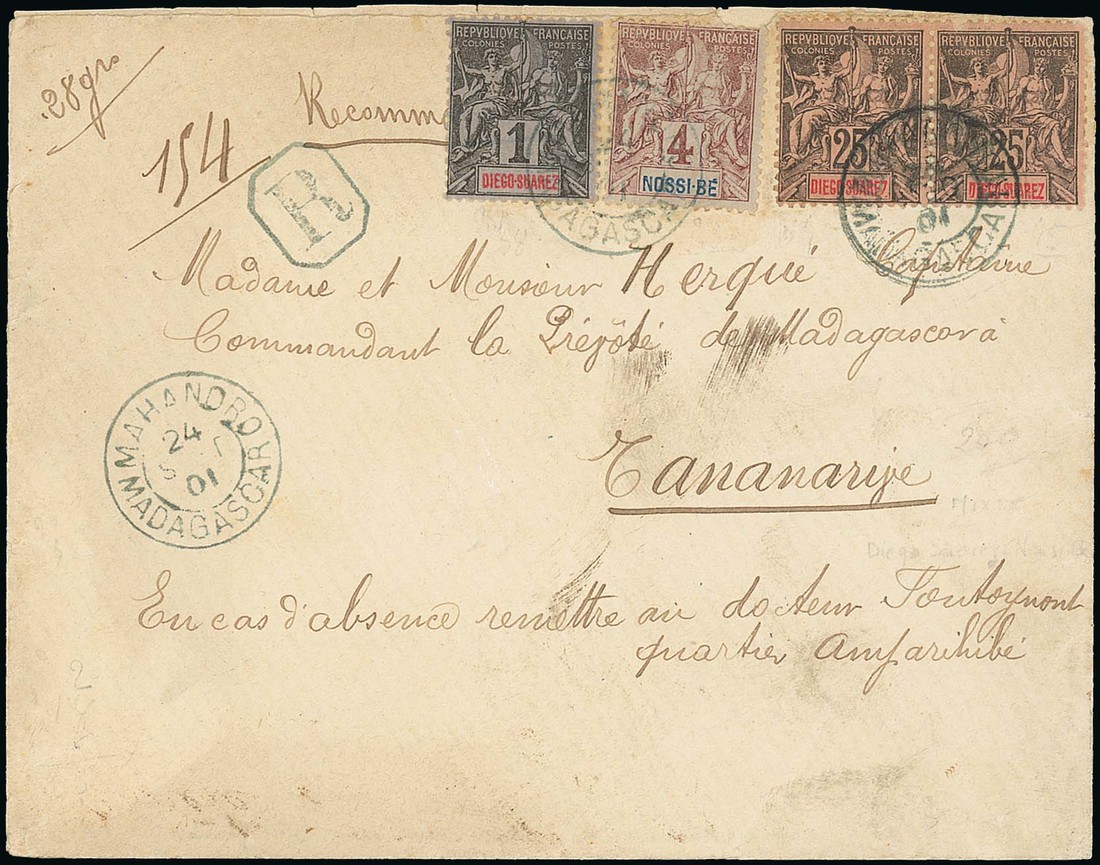 28grs
154
Recomm
R
REPVBLIQVE FRANÇAISE
COLONIES POSTES
1
DIEGO-SUAREZ
REPVBLIQVE FRANÇAISE
COLONIES POSTES
4
NOSSI-BÉ
REPVBLIQVE FRANÇAISE
COLONIES POSTES
25
DIEGO-SUAREZ
REPVBLIQVE FRANÇAISE
COLONIES POSTES
25
DIEGO-SUAREZ
MADAGASCAR
01
Madame et Monsieur Herqué Capitaine
Commandant la Prévôté de Madagascar à
MAHANORO
24
01
MADAGASCAR
Tananarive
Diego Suarez
En cas d'absence remettre au docteur Fontoynont
quartier Amparihibé